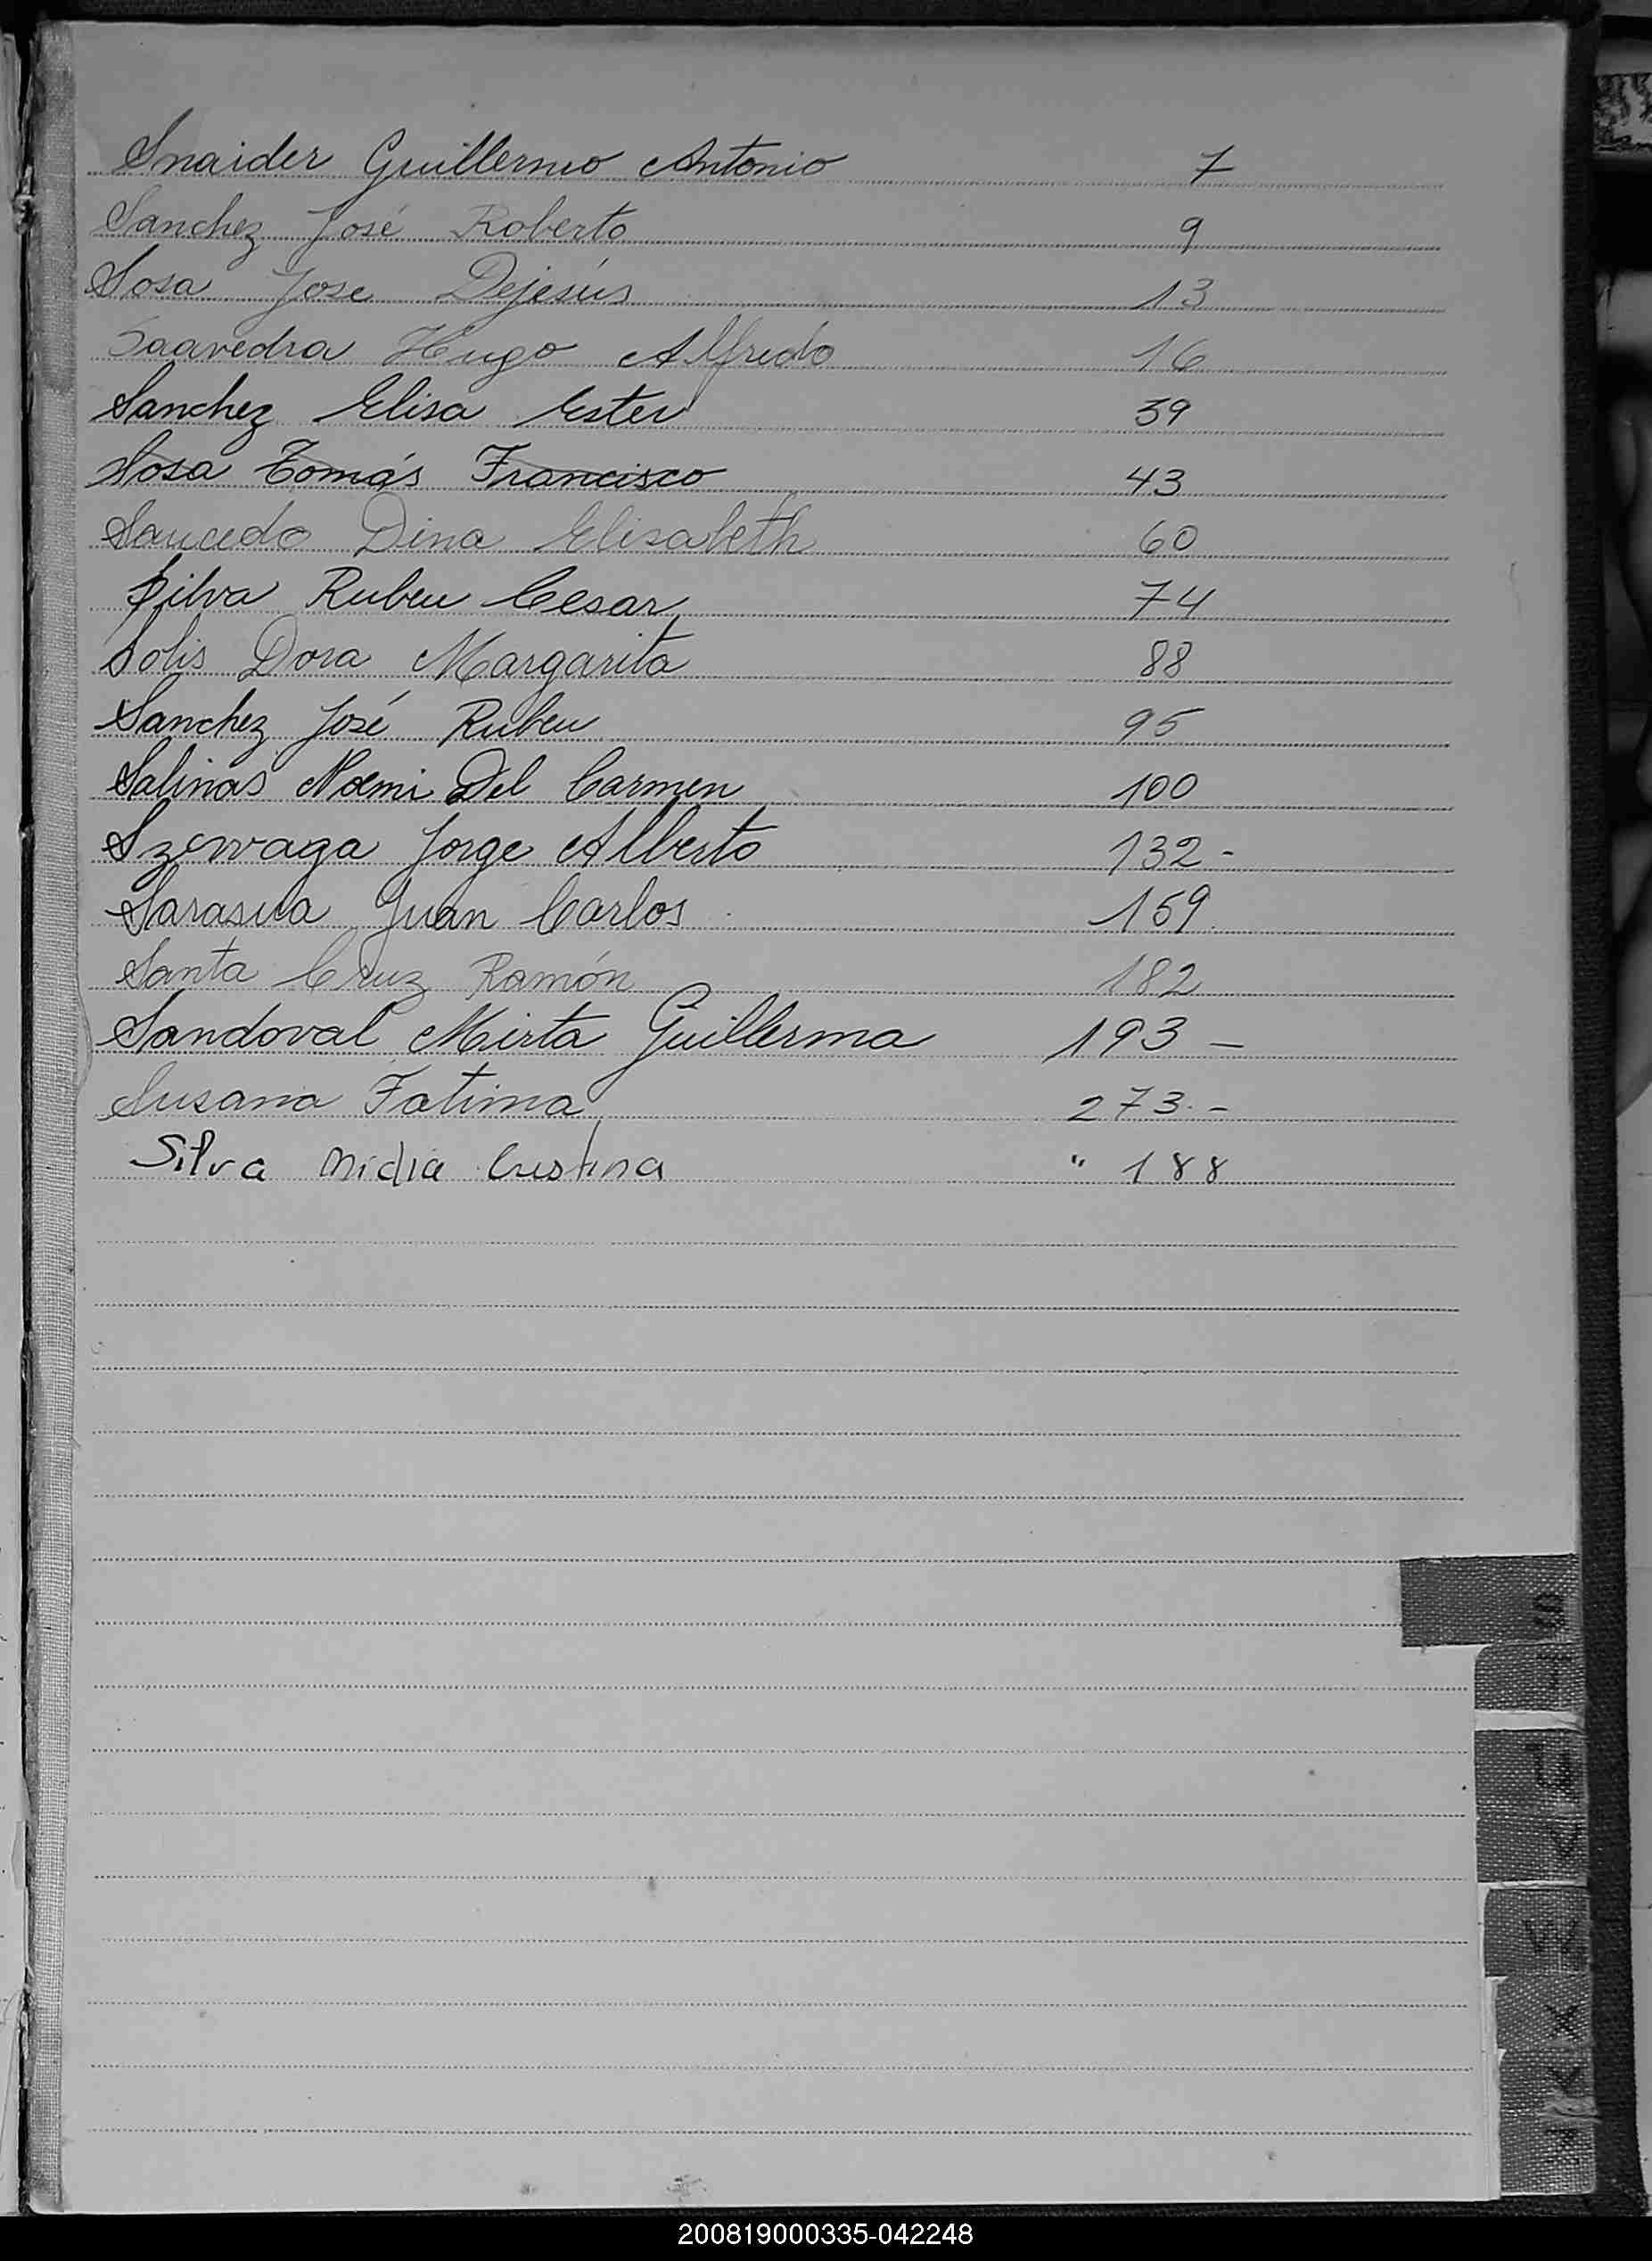 Snaider Guillermo Antonio 7
Sanchez José Roberto 9
Sosa Jose Dejesús 13
Saavedra Hugo Alfredo 16
Sanchez Elisa Ester 39
Sosa Tomás Francisco 43
Saucedo Dina Elisabeth 60
Silva Ruben Cesar 74
Solis Dora Margarita 88
Sanchez José Ruben 95
Salinas Noemi Del Carmen 100
Jorge Alberto 132-
Sarasua Juan Carlos 159.
Santa Cruz Ramón 182
Sandoval Mirta Guillerma 193 -
Susana Fatima 273.-
Silva Nidia Cristina " 188
S
X
200819000335-042248